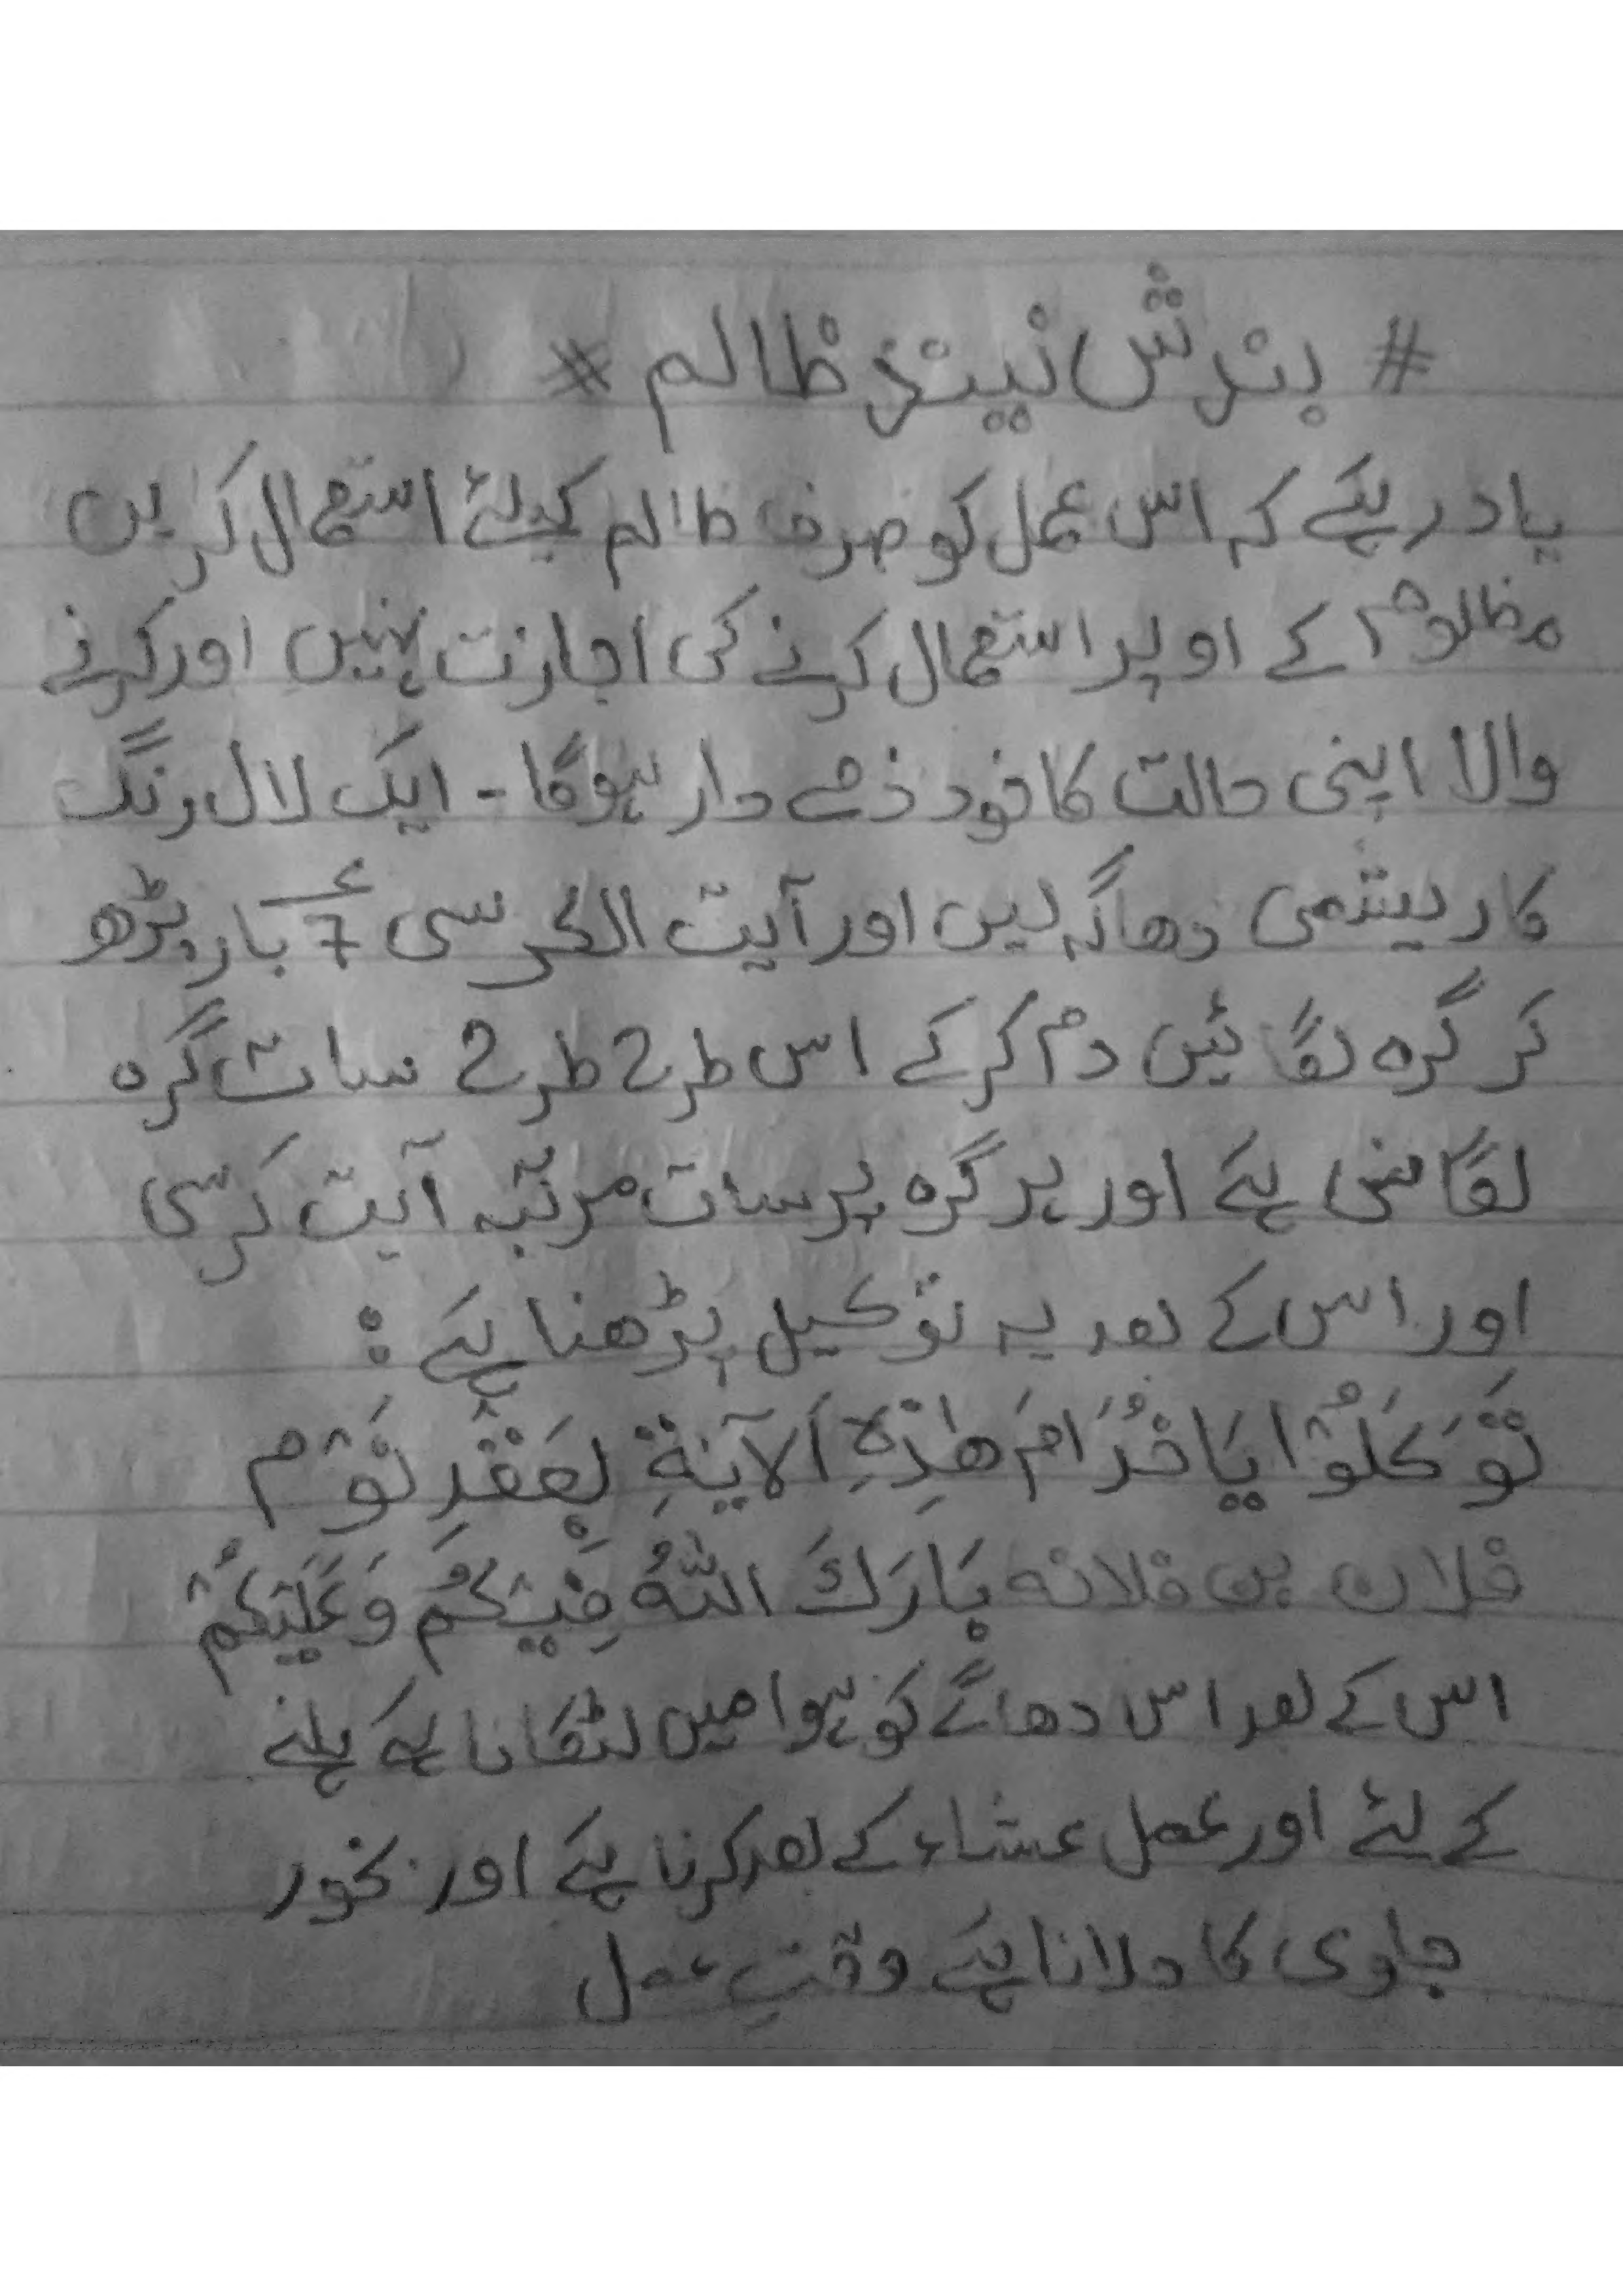 # بندش نیند ظالم #
یاد رہے کہ اس عمل کو صرف ظالم کیلئے استعمال کریں
مظلوم کے اوپر استعمال کرنے کی اجازت نہیں اور کرنے
والا اپنی حالت کا خود ذمے دار ہوگا - ایک لال رنگ
کا ریشمی دھاگہ لیں اور آیت الکرسی 7 بار پڑھ
کر گرہ لگائیں دم کرکے اس طرح طرح سات گرہ
لگانی ہے اور ہر گرہ پر سات مرتبہ آیت کرسی
اور اس کے بعد یہ توکیل پڑھنا ہے :
تَوَكَلُوْا يَا خُدَامَ هٰذِهِ اَلآيَةِ بِعَقْدِ نَوْم
فلان بن فلانہ بَارَكَ اللّٰهُ فِيْكُمْ وَعَلَيْكُمْ
اس کے بعد اس دھاگے کو ہوا میں لٹکانا ہے ہلنے
کے لئے اور عمل عشاء کے بعد کرنا ہے اور بخور
جاوی کا جلانا ہے وقتِ عمل